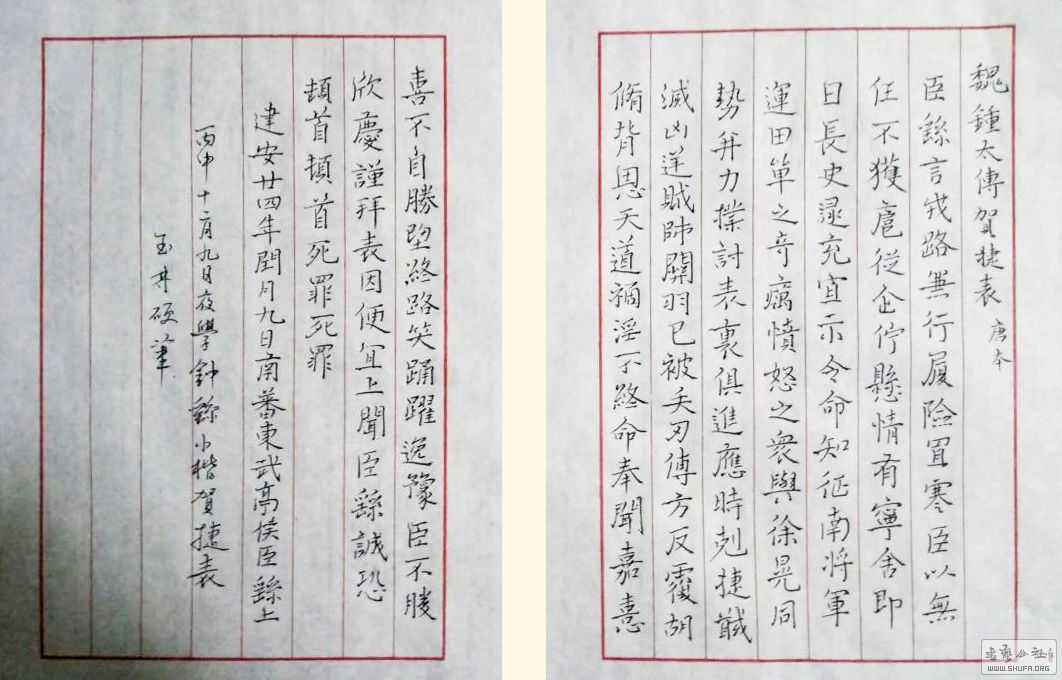 魏鍾太傅賀捷表 唐本
臣繇言戎路兼行履險冒寒臣以無
任不獲扈從企佇懸情有寧舍即
日長史逯充宣示令命知征南將軍
運田單之奇厲憤怒之衆與徐晃同
勢并力撲討表裏俱進應時剋捷馘
滅凶逆賊帥關羽已被矢刃傅方反覆胡
脩背恩天道禍淫不終命奉聞嘉憙
喜不自勝望路載笑踊躍逸豫臣不勝
欣慶謹拜表因便宜上聞臣繇誠恐
頓首頓首死罪死罪
建安廿四年閏月九日南蕃東武亭侯臣繇上
丙申十二月九日夜學鍾繇小楷賀捷表
玉井硬筆
書藝公社
WWW.SHUFA.ORG